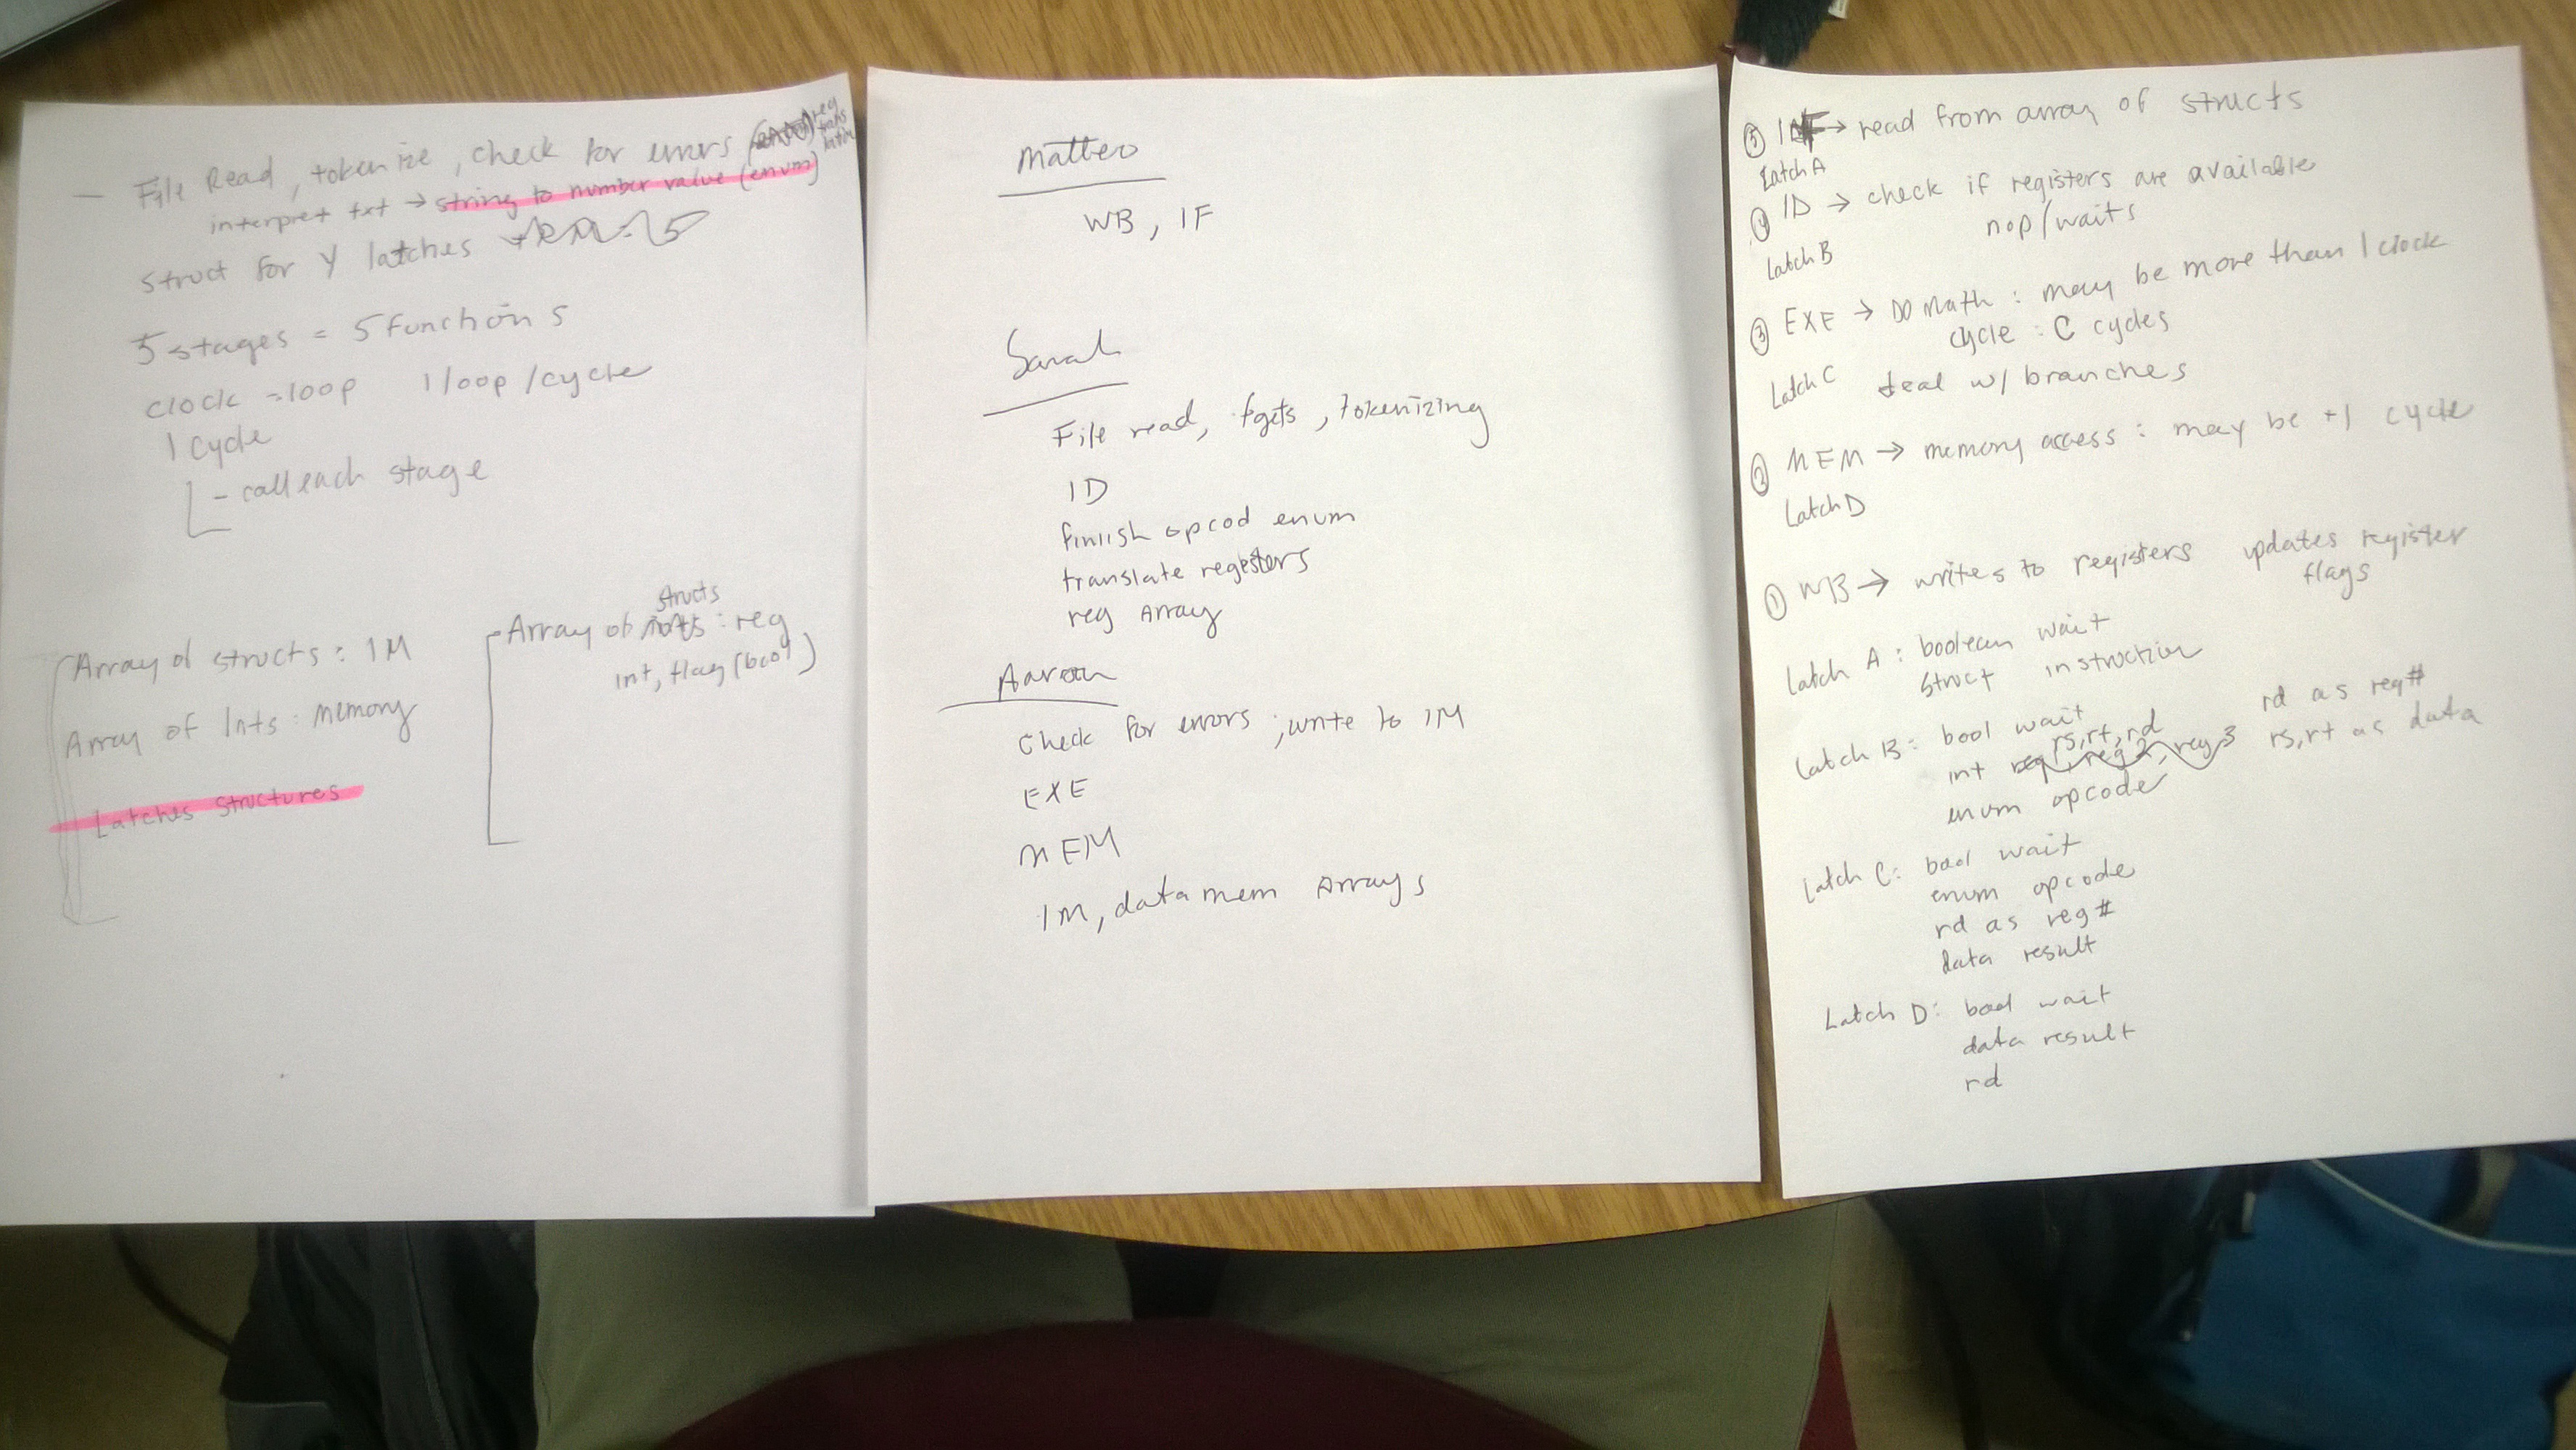 — File Read, tokenize, check for errors (reg
trans
lation
interpret txt → string to number value (enum)
struct for 4 latches
5 stages = 5 functions
clock = loop 1 loop / cycle
1 cycle
- call each stage
Array of structs : IM
Array of Ints : memory
Latches structures
structs
Array of : reg
int, flag (bool)
Matteo
WB, IF
Sarah
File read, fgets, tokenizing
ID
finiish opcod enum
translate regesters
reg Array
Aaron
Check for errors ; write to IM
EXE
MEM
IM, data mem Arrays
⑤ IF → read from array of structs
Latch A
④ ID → check if registers are available
nop / waits
Latch B
③ EXE → DO Math : may be more than 1 clock
cycle : C cycles
Latch C deal w/ branches
② MEM → memory access : may be +1 cycle
Latch D
① WB → writes to registers updates register
flags
Latch A : boolean wait
struct instruction
Latch B : bool wait
rs, rt, rd rd as reg#
int reg1, reg2, reg3 rs, rt as data
enum opcode
Latch C : bool wait
enum opcode
rd as reg#
data result
Latch D : bool wait
data result
rd